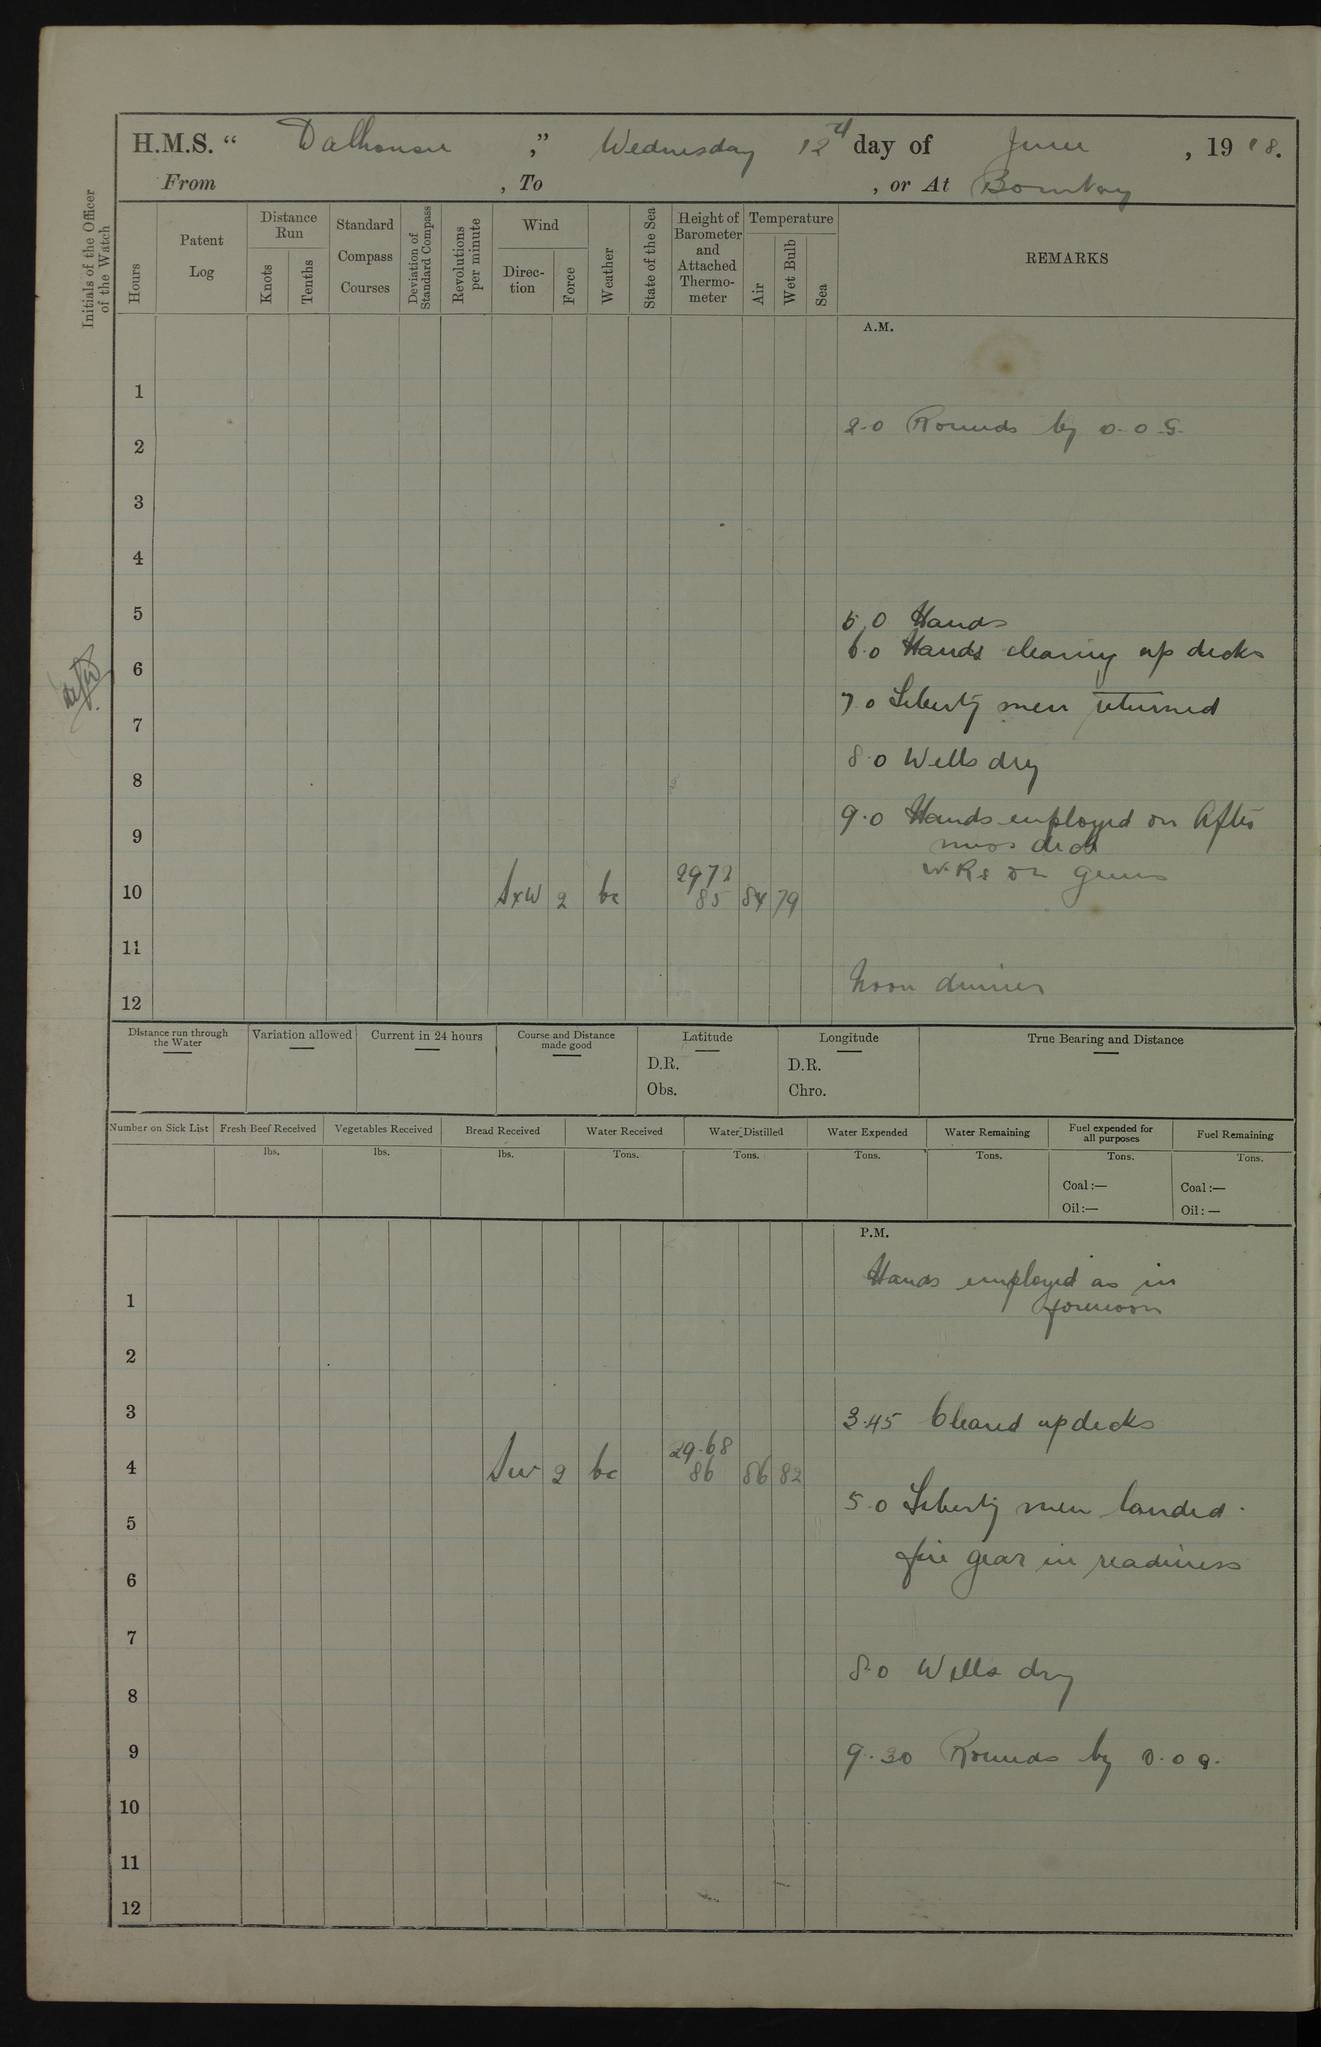 H.M.S. " Dalhousie ," Wednesday 12th day of June , 1918.
From , To , or At Bombay
Initials of the Officer of the Watch
Hours
Patent Log
Distance Run
Knots
Tenths
Standard Compass Courses
Deviation of Standard Compass
Revolutions per minute
Wind
Direc-tion
Force
Weather
State of the Sea
Height of Barometer and Attached Thermo-meter
Temperature
Air
Wet Bulb
Sea
REMARKS
A.M.
1
2.0 Rounds by O.O.G.
2
3
4
5
5.0 Hands
6.0 Hands cleaning up decks
6
7.0 Liberty men returned
7
8.0 Wells dry
8
9.0 Hands employed on After
9
mess deck
W.Rs on guns
2972
10 SxW 2 bc 85 84 79
11
Noon dinner
12
Distance run through the Water
Variation allowed
Current in 24 hours
Course and Distance made good
Latitude
D.R.
Obs.
Longitude
D.R.
Chro.
True Bearing and Distance
Number on Sick List
Fresh Beef Received
lbs.
Vegetables Received
lbs.
Bread Received
lbs.
Water Received
Tons.
Water Distilled
Tons.
Water Expended
Tons.
Water Remaining
Tons.
Fuel expended for all purposes
Tons.
Coal:—
Oil:—
Fuel Remaining
Tons.
Coal:—
Oil:—
P.M.
Hands employed as in
1
forenoon
2
3
3.45 Cleared up decks
29.68
4 SW 2 bc 86 86 82
5.0 Liberty men landed.
5
Fire gear in readiness
6
7
8.0 Wells dry
8
9
9.30 Rounds by O.O.G.
10
11
12